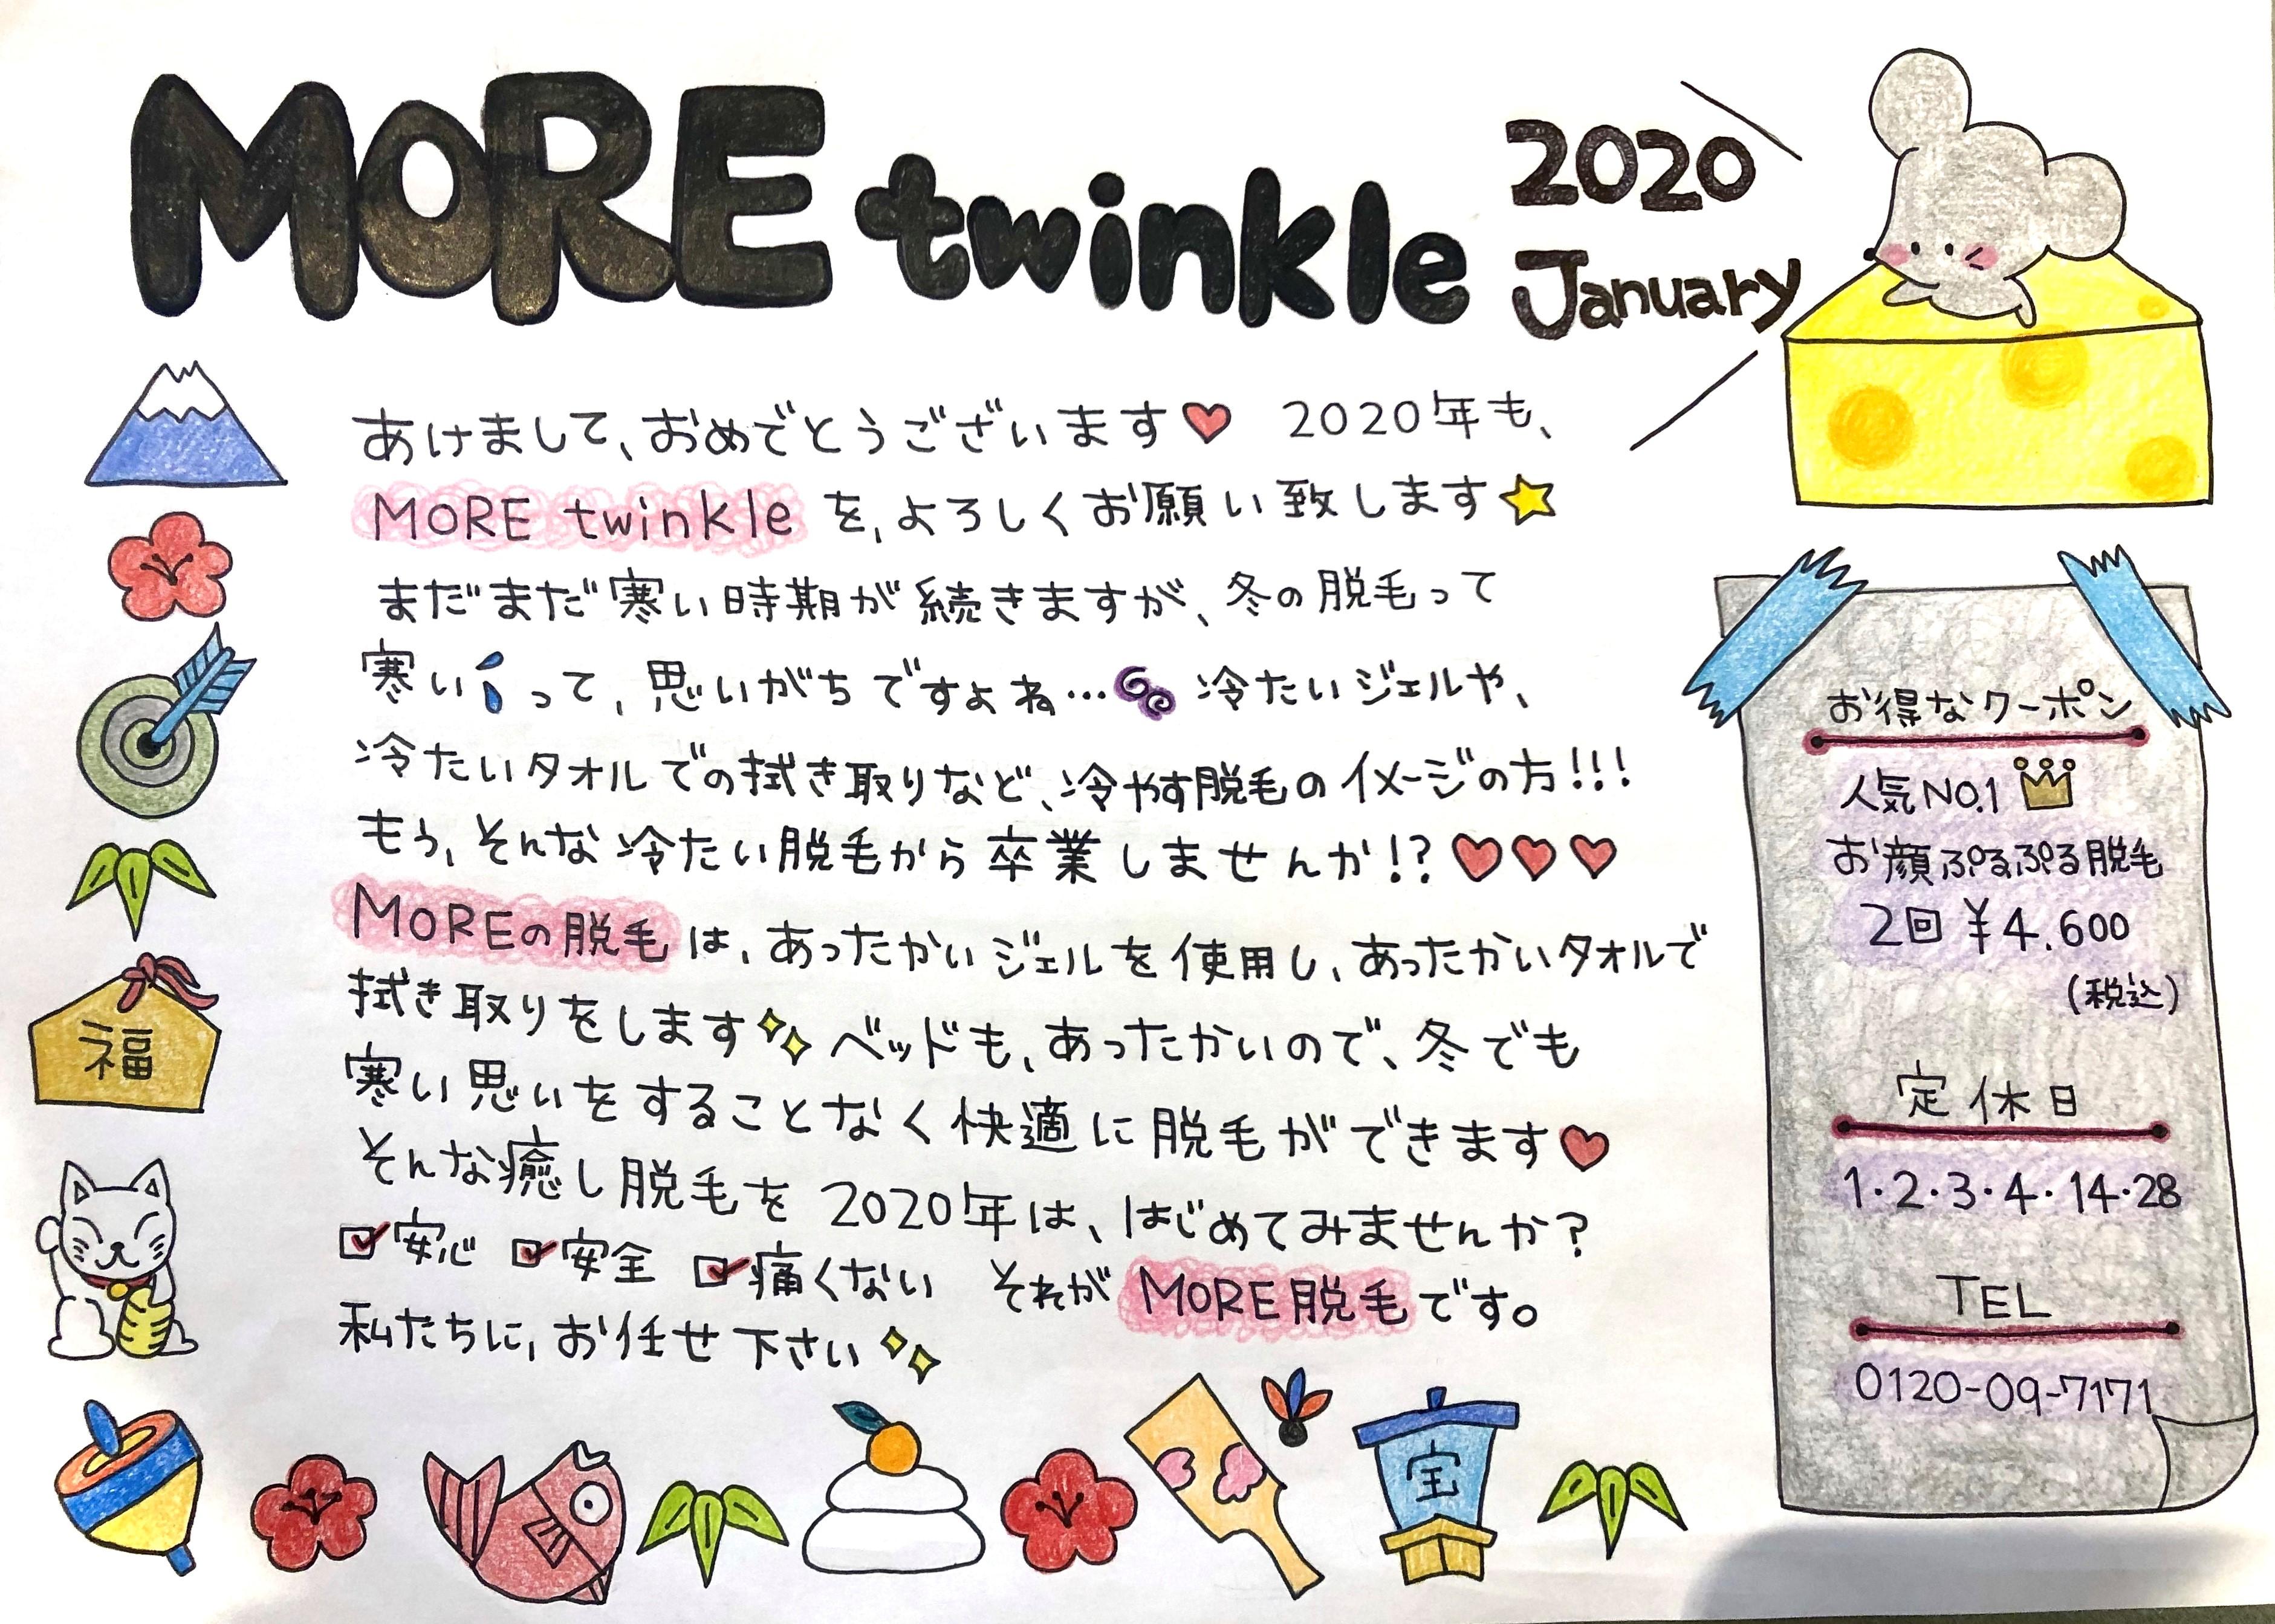 MORE twinkle
2020
January
あけまして、おめでとうございます♥ 2020年も、
MORE twinkle を、よろしくお願い致します☆
まだまだ寒い時期が続きますが、冬の脱毛って
寒いって、思いがちですよね… 冷たいジェルや、
冷たいタオルでの拭き取りなど、冷やす脱毛のイメージの方!!!
もう、そんな冷たい脱毛から卒業しませんか!?♥♥♥
MOREの脱毛は、あったかいジェルを使用し、あったかいタオルで
拭き取りをします ベッドも、あったかいので、冬でも
寒い思いをすることなく快適に脱毛ができます♥
そんな癒し脱毛を2020年は、はじめてみませんか?
☑安心 ☑安全 ☑痛くない それがMORE脱毛です。
私たちに、お任せ下さい
お得なクーポン
人気NO.1
お顔ぷるぷる脱毛
2回 ¥4.600
(税込)
定休日
1・2・3・4・14・28
TEL
0120-09-7171
福
宝